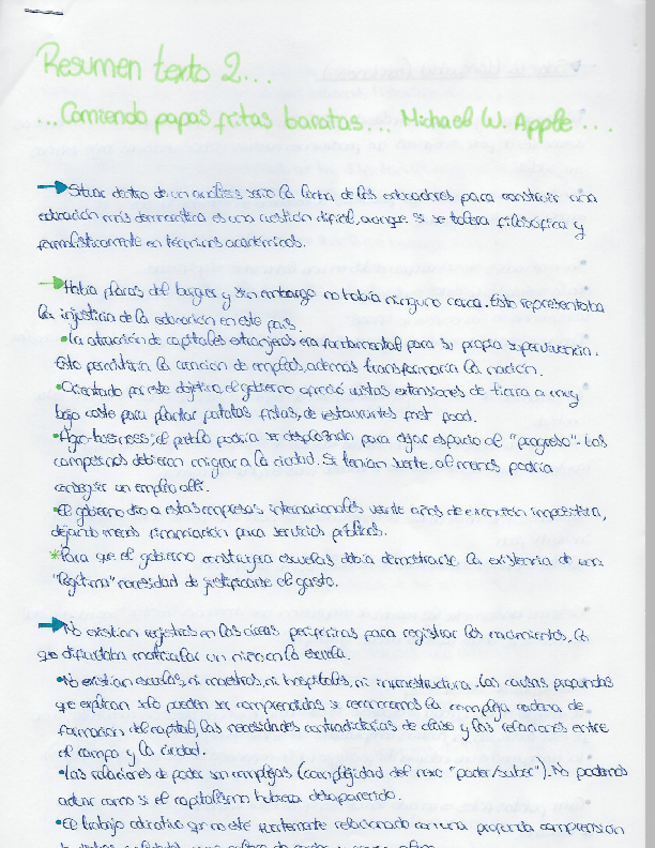 Resumen texto 2...
...Comiendo papas fritas baratas... Michael W. Apple...
Situar dentro de un análisis serio la lucha de los educadores para construir una
educación más democrática es una cuestión difícil, aunque si se tolera filosófica y
formalísticamente en términos académicos.
Había placas del burger y sin embargo no había ninguno cerca. Esto representaba
la injusticia de la educación en este país.
•La atracción de capitales extranjeros era fundamental para su propia supervivencia.
Esto permitiría la creación de empleos, además transformaría la nación.
•Orientado por este objetivo, el gobierno ofreció vastas extensiones de tierra a muy
bajo coste para plantar patatas fritas, de restaurantes fast food.
•Agro-business; el pueblo podría ser desplazado para dejar espacio al "progreso". Los
campesinos debieran migrar a la ciudad. Si tenían suerte, al menos podría
conseguir un empleo allí.
•El gobierno dio a estas empresas internacionales veinte años de exención impositiva,
dejando menos financiación para servicios públicos.
*Para que el gobierno construyera escuelas debía demostrarse la existencia de una
"legítima" necesidad de justificarse el gasto.
No existían registros en las áreas periféricas para registrar los nacimientos, lo
que dificultaba matricular un niño en la escuela.
•No existían escuelas, ni maestros, ni hospitales, ni infraestructura. Las causas profundas
que explican solo pueden ser comprendidas si reconocemos la compleja cadena de
formación del capital, las necesidades contradictorias de clase y las relaciones entre
el campo y la ciudad.
•Las relaciones de poder son complejas (complejidad del nexo "poder/saber"). No podemos
actuar como si el capitalismo hubiera desaparecido.
•El trabajo educativo que no esté fuertemente relacionado con una profunda comprensión